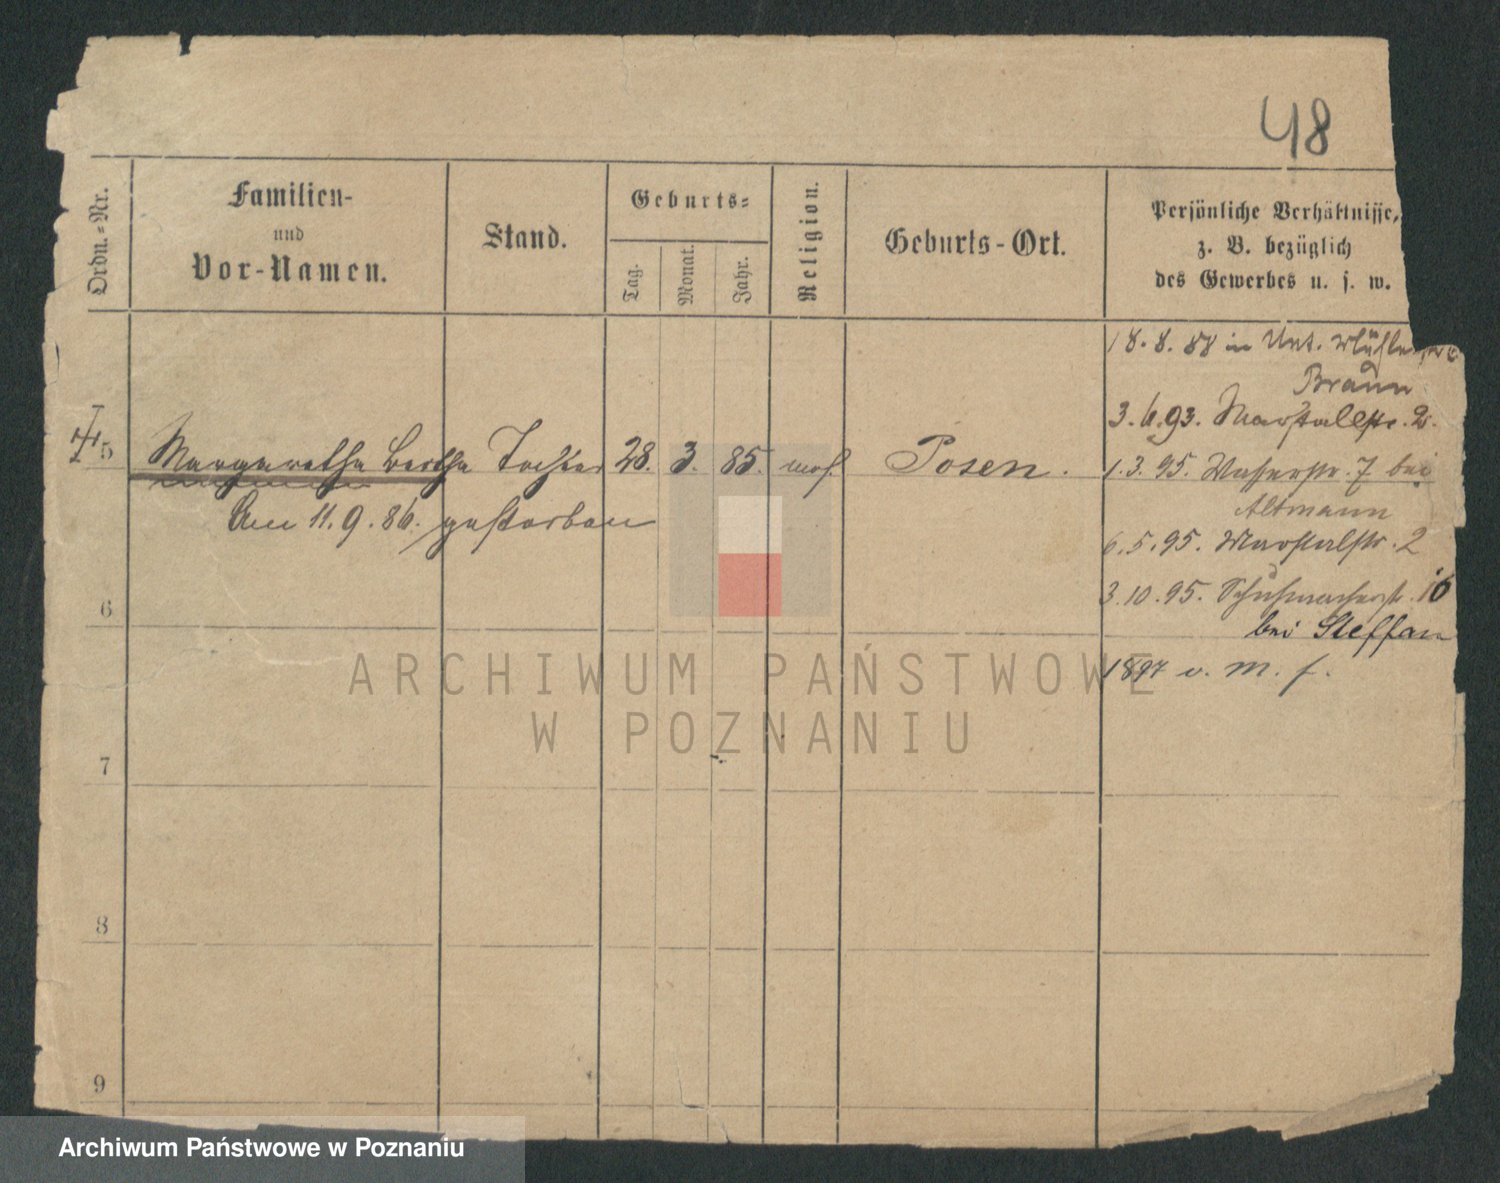 48
Ordn.-Nr.
Familien-
und
Vor-Namen.
Stand.
Geburts-
Tag.
Monat.
Jahr.
Religion.
Geburts-Ort.
Persönliche Verhältnisse,
z. B. bezüglich
des Gewerbes u. s. w.
18.8.88 in Unt.
Braun
3.6.93. Marstallstr. 2.
5 Margarethe Bertha Tochter 28. 3. 85. mos. Posen.
1.3.95. Wasserstr. 7 bei
Altmann
Am 11.9.86. gestorben
6.5.95. Marstallstr. 2
3.10.95. Schuhmacherstr. 16
6
bei Steffan
1897 v. M. f.
ARCHIWUM PAŃSTWOWE
W POZNANIU
7
8
9
Archiwum Państwowe w Poznaniu